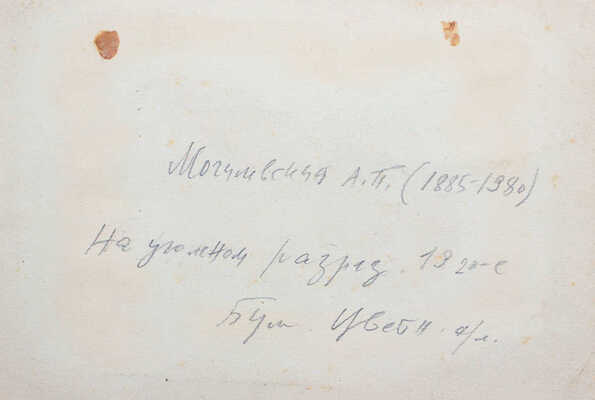 Могилевская А.П. (1885-1980)
На угольном разрез. 1920-е
Бум. Цветн. а/л.